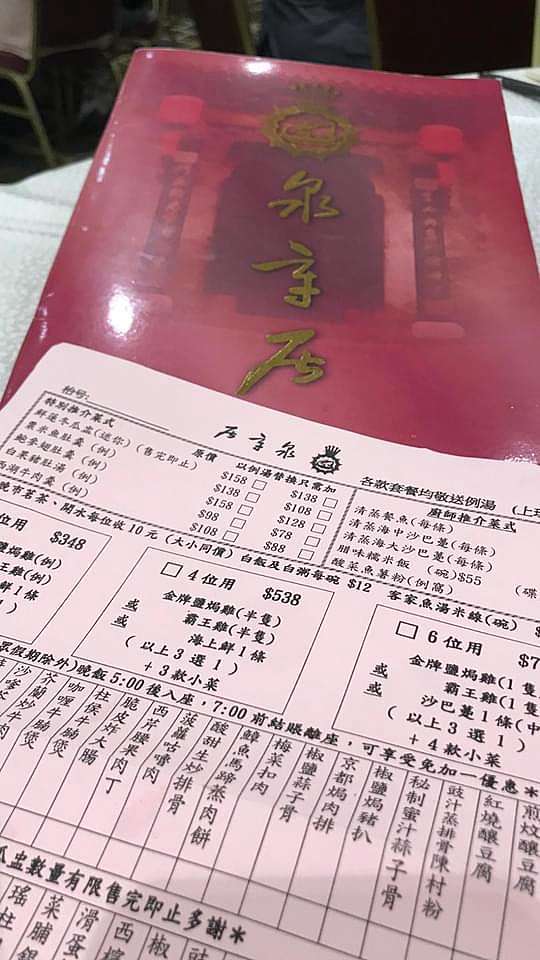 泉章居
枱号:
居章泉
特別推介菜式
原價
以例湯替換只需加
鮮蓮冬瓜盅(迷你)(售完即止)
$158
$138
粟米魚肚羹(例)
$138
$108
鮑參翅肚羹(例)
$158
$128
白果豬肚湯(例)
$98
$78
西湖牛肉羹(例)
$108
$88
各款套餐均敬送例湯
廚師推介菜式
清蒸餐魚(每條)
清蒸海中沙巴躉(每條)
清蒸海大沙巴躉(每條)
腊味糯米飯 (碗)$55
酸菜魚薯粉(例窩)
晚芥茗茶、開水每位收10元(大小同價)白飯及白粥每碗 $12 客家魚湯米線(碗)
位用 $348
鹽焗雞(例)
王雞(例)
鮮1條
4位用 $538
金牌鹽焗雞(半隻)
或 霸王雞(半隻)
或 海上鮮1條
(以上3選1)
+3款小菜
6位用
金牌鹽焗雞(1隻
或 霸王雞(1隻
或 沙巴躉1條(中
(以上3選1)
+4款小菜
眾假期除外)晚飯5:00後入座,7:00前結賬離座,可享受免加一優惠*
煎炆釀豆腐
紅燒釀豆腐
豉汁蒸排骨陳村粉
秘制蜜汁蒜子骨
椒鹽焗豬扒
京都焗肉排
椒鹽蒜子骨
梅菜扣肉
鱆魚馬蹄蒸肉餅
酸甜生炒排骨
菠蘿咕嚕肉
西芹腰果肉丁
脆皮炸大腸
柱侯牛腩煲
咖喱牛腩煲
芥蘭炒牛肉
瓜盅數量有限售完即止多謝*
瑤柱
菜脯
滑蛋
西檸
椒
豉